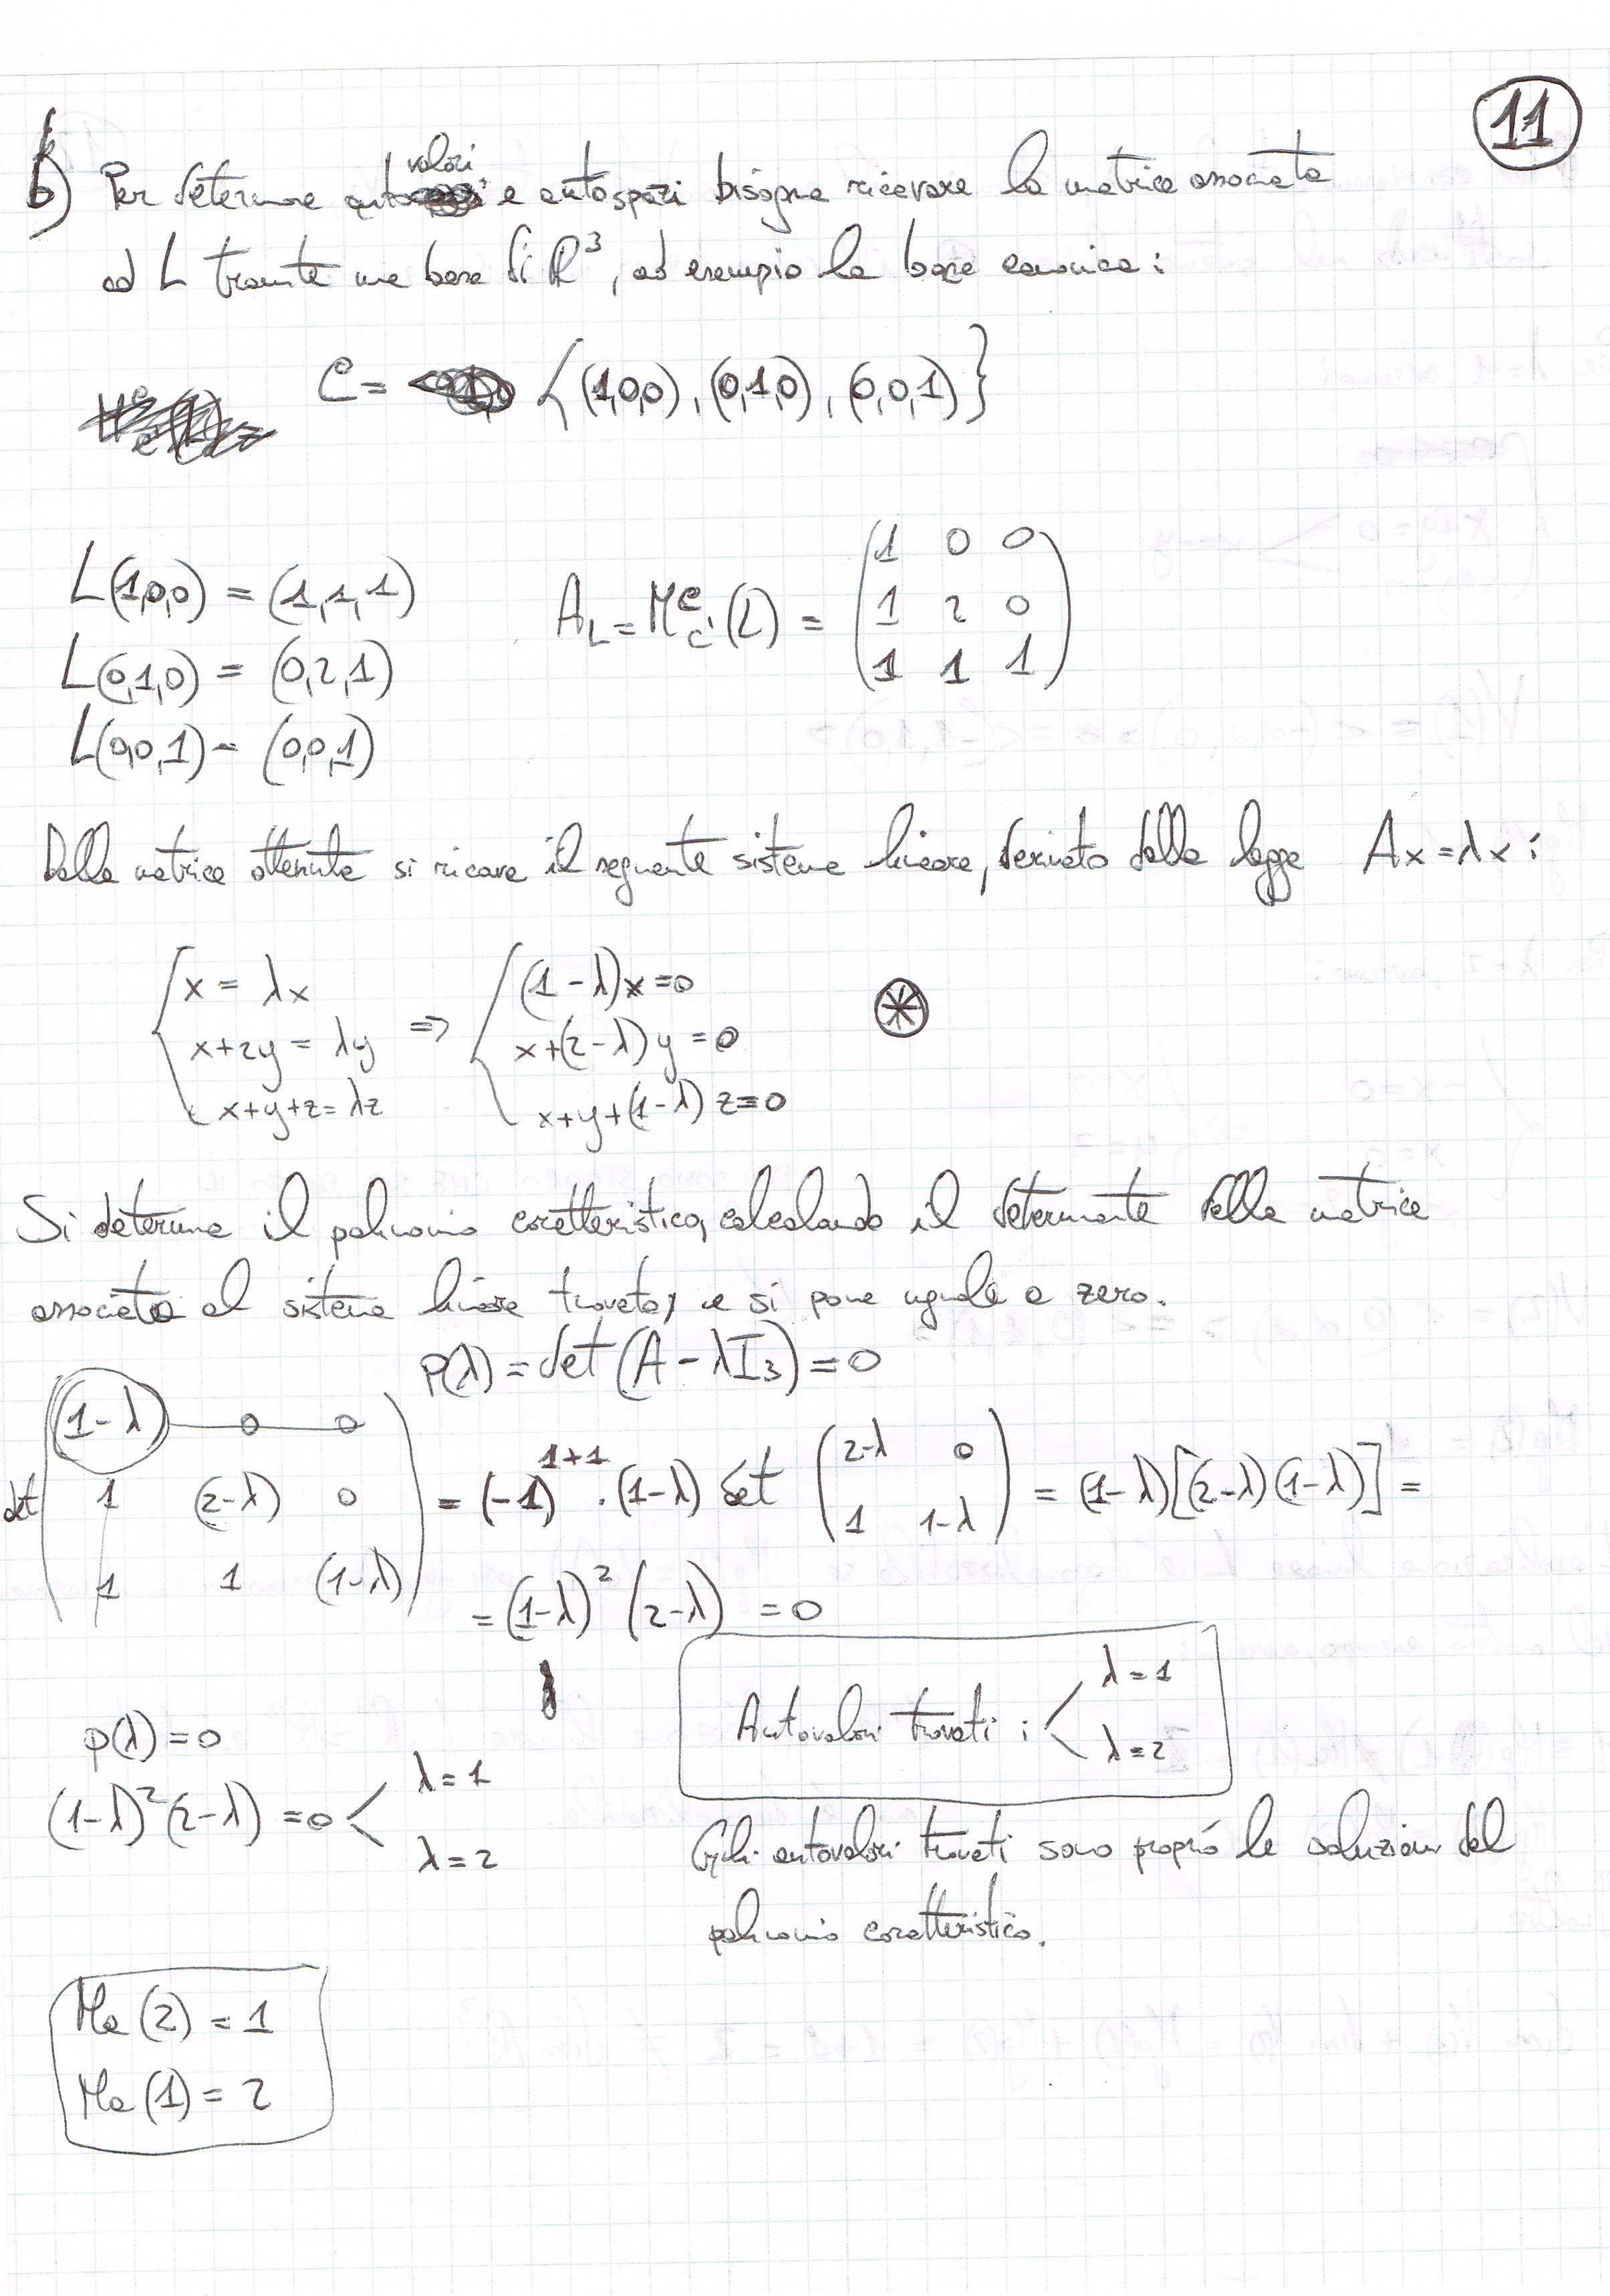 11
b) Per determinare autovalori e autospazi bisogna ricavare la matrice associata
ad L tramite una base di R³, ad esempio la base canonica:
C = {(1,0,0), (0,1,0), (0,0,1)}
L(1,0,0) = (1,1,1)
L(0,1,0) = (0,2,1)
L(0,0,1) = (0,0,1)
A_L = M^C_C (L) =
1 0 0
1 2 0
1 1 1
Dalla matrice ottenuta si ricava il seguente sistema lineare, derivato dalla legge Ax = λx :
x = λx ⇒ (1-λ)x = 0
x+2y = λy x+(2-λ)y = 0 ⊛
x+y+z = λz x+y+(1-λ)z = 0
Si determina il polinomio caratteristico, calcolando il determinante della matrice
associata al sistema lineare trovato, e si pone uguale a zero.
p(λ) = det (A - λI₃) = 0
det
(1-λ) 0 0
1 (2-λ) 0
1 1 (1-λ)
= (-1)¹⁺¹ · (1-λ) det
2-λ 0
1 1-λ
= (1-λ)[(2-λ)(1-λ)] =
= (1-λ)² (2-λ) = 0
Autovalori trovati : λ = 1
λ = 2
p(λ) = 0
(1-λ)² (2-λ) = 0 < λ = 1
λ = 2
Gli autovalori trovati sono proprio le soluzioni del
polinomio caratteristico.
Ma (2) = 1
Ma (1) = 2